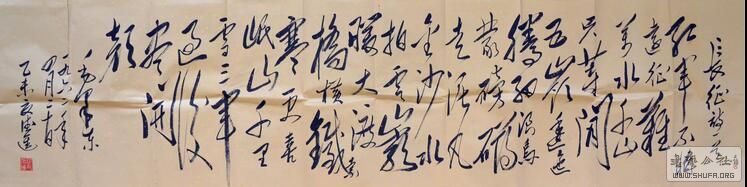 长征诗
红军不
远征难
万水千山
只等闲
五岭逶迤
腾细浪乌
蒙磅礴
走泥丸
金沙水
拍云崖
暖大渡
桥横铁索
寒更喜
岷山千里
雪三军
过后
尽开
颜
毛泽东
一九六二年
四月二十日
乙未
WWW.SHUFA.ORG